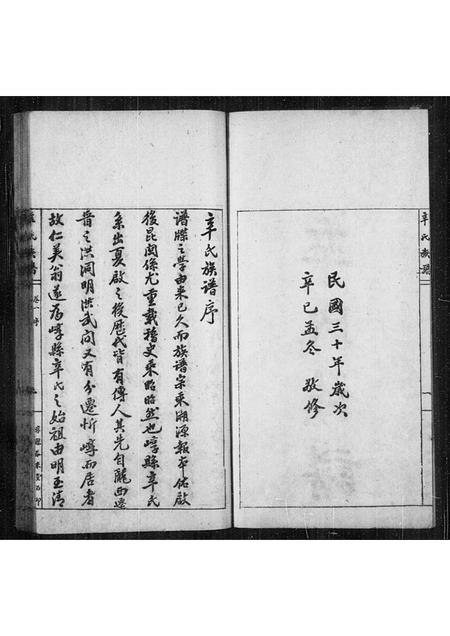 辛氏族譜
民國三十年歲次
辛巳孟冬 敬修
辛氏族譜序
譜牒之學由來已久而族譜宗東溯源報本佑啟
後昆関係尤重載稽史乘昭昭然也崞縣辛氏
系出夏啟之後歷代皆有傳人其先自隴西遷
晋之洪洞明洪武间又有分遷忻崞而居者
故仁美翁遂為崞縣辛氏之始祖由明至清
辛氏族譜
卷一序